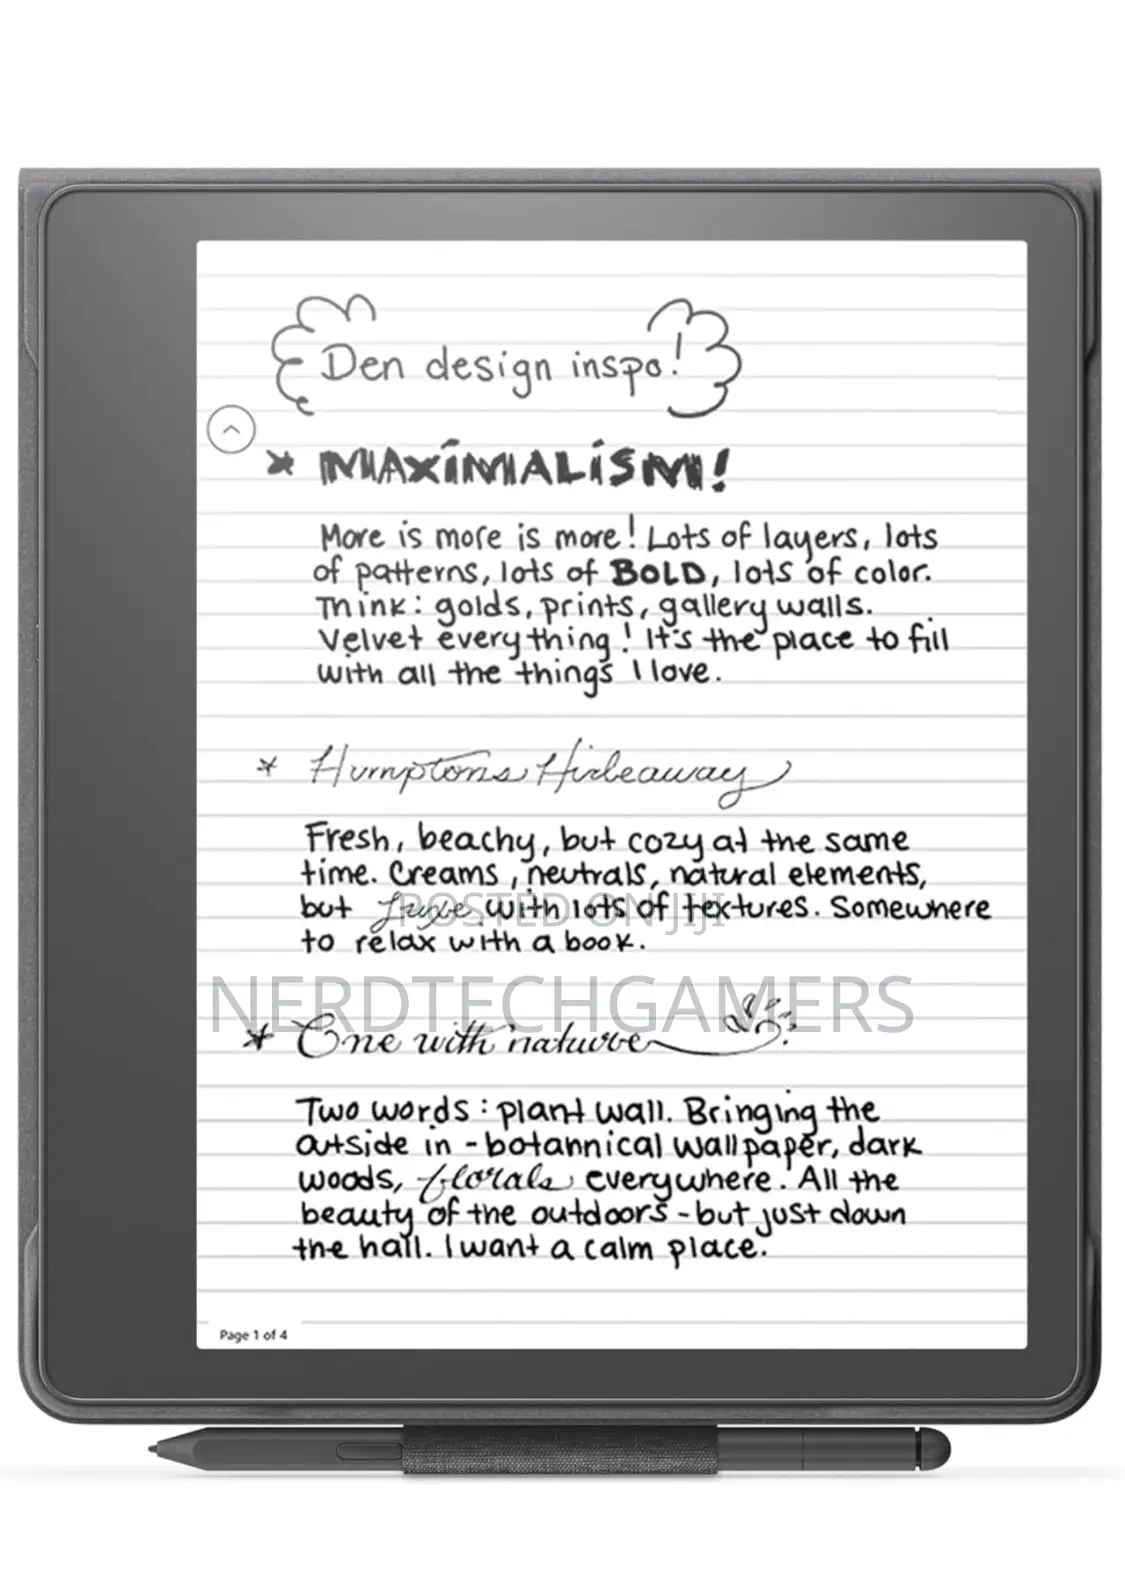 Den design inspo!
* MAXIMALISM!
More is more is more! Lots of layers, lots
of patterns, lots of BOLD, lots of color.
Think: golds, prints, gallery walls.
Velvet everything! It's the place to fill
with all the things I love.
* Humptons Hideaway
Fresh, beachy, but cozy at the same
time. Creams, neutrals, natural elements,
but luxe with lots of textures. Somewhere
POSTED ON JIJI
to relax with a book.
NERDTECHGAMERS
* One with nature
Two words: plant wall. Bringing the
outside in - botannical wallpaper, dark
woods, florals everywhere. All the
beauty of the outdoors - but just down
the hall. I want a calm place.
Page 1 of 4